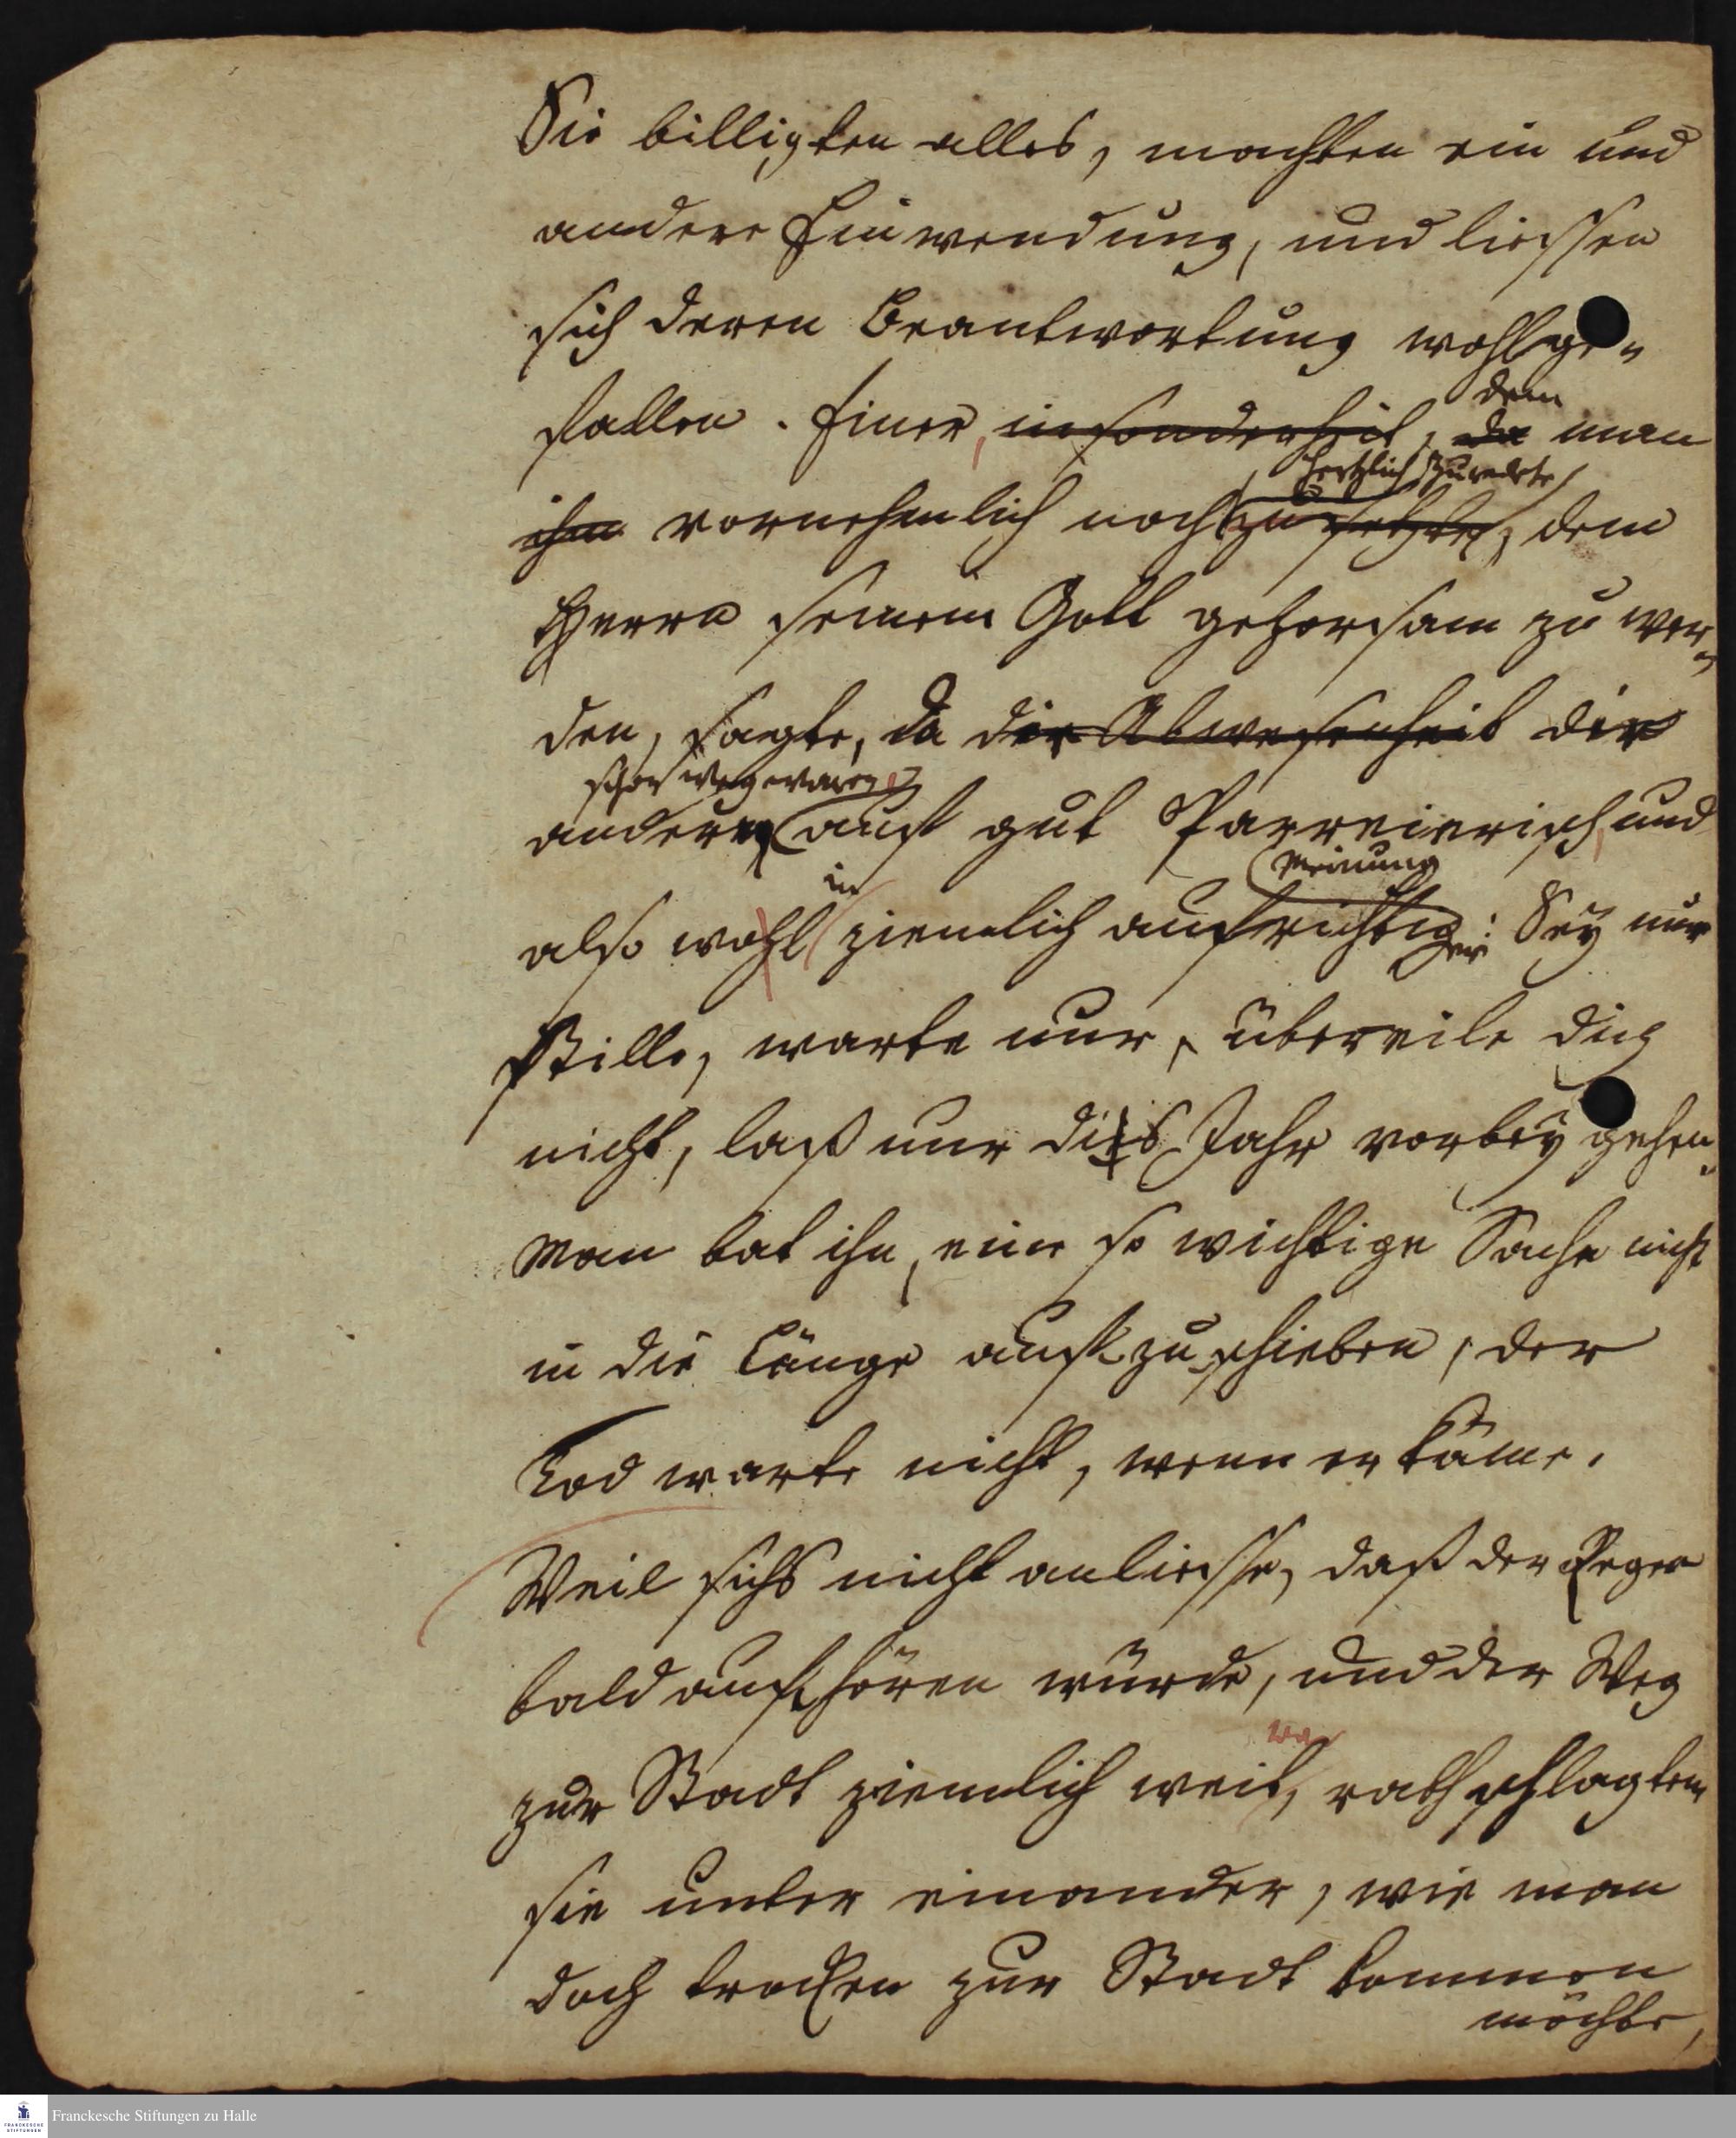 Sie billigten alles, machten ein und
andere Einwendung, und liessen
sich deren Beantwortung wohlge-
fallen. Einer, insonderheit, da dem man
ihm vornehmlich noch zusetzte, hertzlich zuredete, dem
HErrn seinem Gott gehorsam zu wer-
den, sagte, da die Abwesenheit die
schon weg waren,
andern auf gut Parreierisch, und
also wohl in ziemlich aufrichtiger Meinung: Sey nur
stille, warte nur, übereile dich
nicht, laß nur dis Jahr vorbey gehen.
Man bat ihn, eine so wichtige Sache nicht
in die Länge aufzuschieben, der
Tod warte nicht, wenn er käme.
Weil sichs nicht anliesse, daß der Regen
bald aufhören würde, und der Weg
zur Stadt ziemlich weit war, rathschlagten
sie unter einander, wie man
doch trocken zur Stadt kommen
möchte,
Franckesche Stiftungen zu Halle